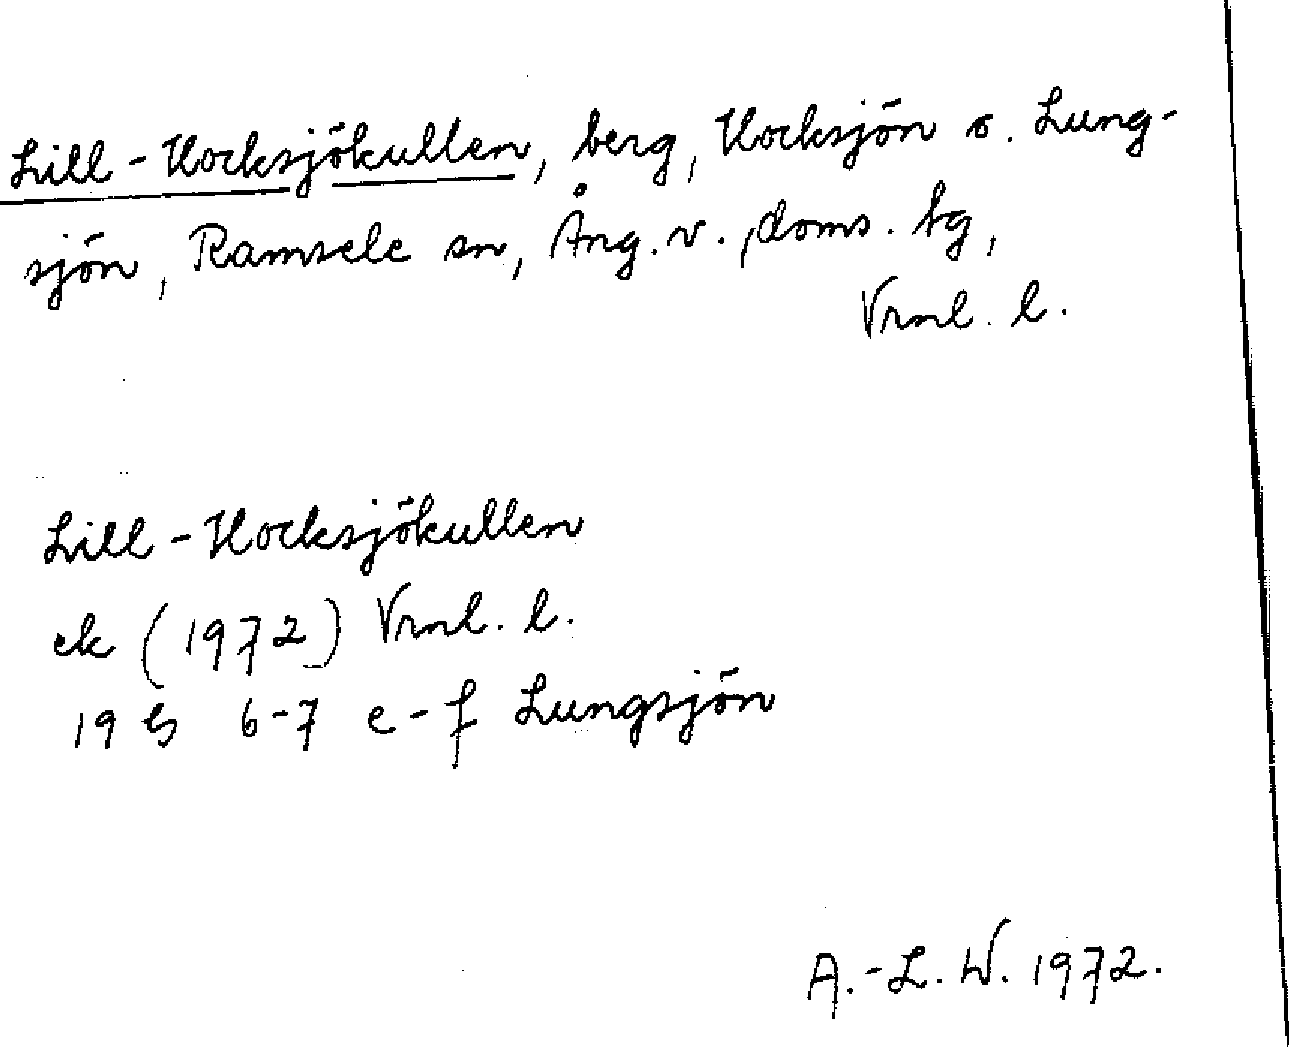 Lill-Hocksjökullen, berg, Hocksjön o. Lung-
sjön, Ramsele sn, Ång. v., doms. bg,
Vrnl. l.
Lill-Hocksjökullen
ek (1972) Vrnl. l.
19 G 6-7 e-f Lungsjön
A.-L. W. 1972.